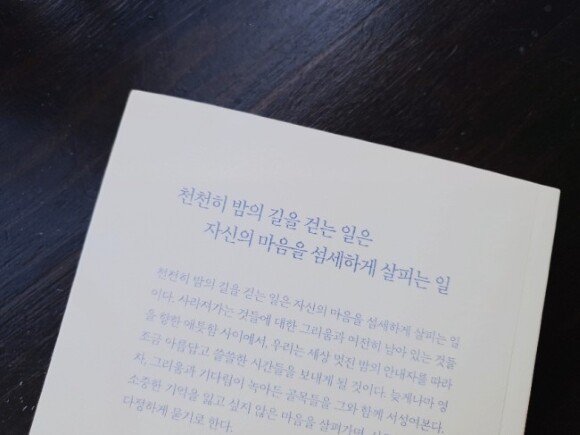 천천히 밤의 길을 걷는 일은
자신의 마음을 섬세하게 살피는 일
천천히 밤의 길을 걷는 일은 자신의 마음을 섬세하게 살피는 일
이다. 사라져가는 것들에 대한 그리움과 여전히 남아 있는 것들
을 향한 애틋함 사이에서, 우리는 세상 멋진 밤의 안내자를 따라
조금 아름답고 쓸쓸한 시간들을 보내게 될 것이다. 늦게나마 영
차, 그리움과 기다림이 녹아든 골목들을 그와 함께 서성여본다.
소중한 기억을 잃고 싶지 않은 마음을 살펴가며,
다정하게 묻기로 한다.